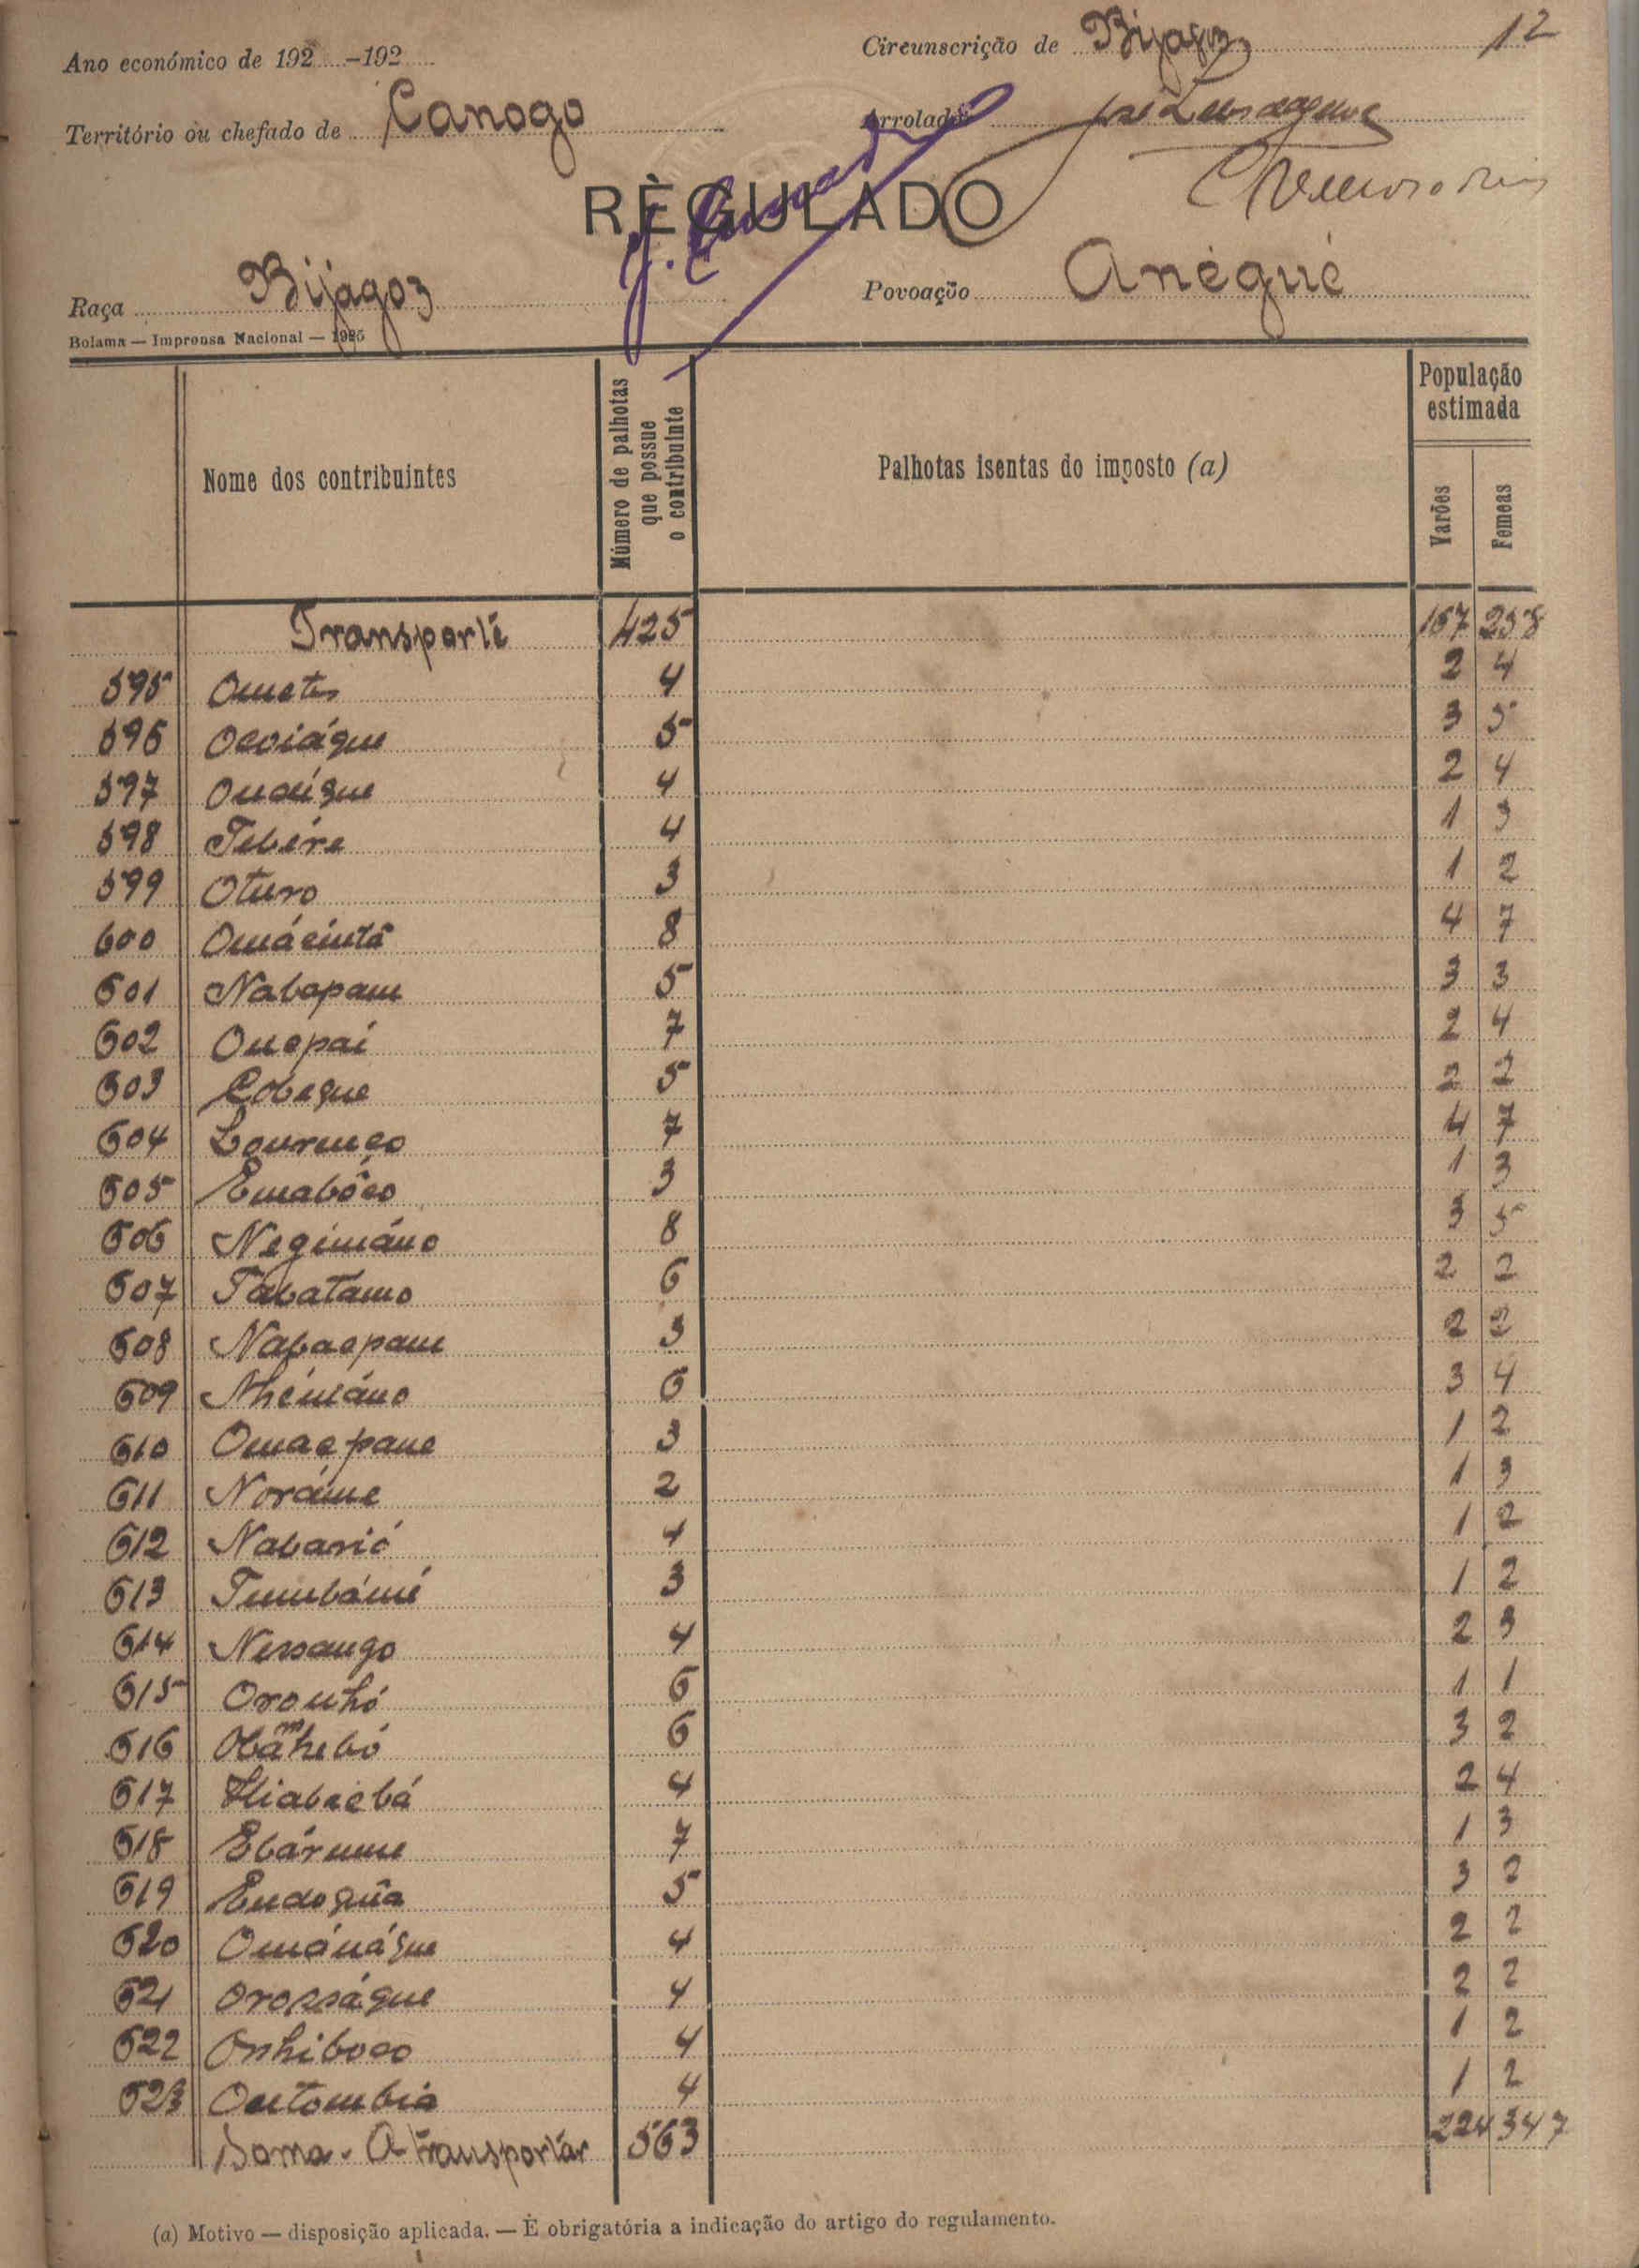 12
Ano económico de 192 -192 Circunscrição de Bijagoz
Território ou chefado de Canogo Arrolador
RÈGULADO
Raça Bijagoz Povoação Anégué
Bolama — Imprensa Nacional — 1925
Nome dos contribuintes
Número de palhotas que possue o contribuinte
Palhotas isentas do imposto (a)
População estimada
Varões
Femeas
Transporte 425 167 258
595 4 2 4
596 5 3 5
597 4 2 4
598 Tebére 4 1 3
599 Oturo 3 1 2
600 8 4 7
601 Nabopam 5 3 3
602 Onepai 7 2 4
603 Cobeque 5 2 2
604 Lourenço 7 4 7
605 Emabôco 3 1 3
606 Negimáno 8 3 5
607 Tabatamo 6 2 2
608 Nabaepam 3 2 2
609 Nhémáno 6 3 4
610 Omaepane 3 1 2
611 Noráme 2 1 3
612 Nabarió 4 1 2
613 3 1 2
614 Nessango 4 2 3
615 Oronhó 6 1 1
616 6 3 2
617 4 2 4
618 Ebárume 7 1 3
619 5 3 2
620 Ománáque 4 2 2
621 Orosságue 4 2 2
622 Onhiboco 4 1 2
623 4 1 2
Soma - A transportar 563 224 347
(a) Motivo — disposição aplicada. — È obrigatória a indicação do artigo do regulamento.